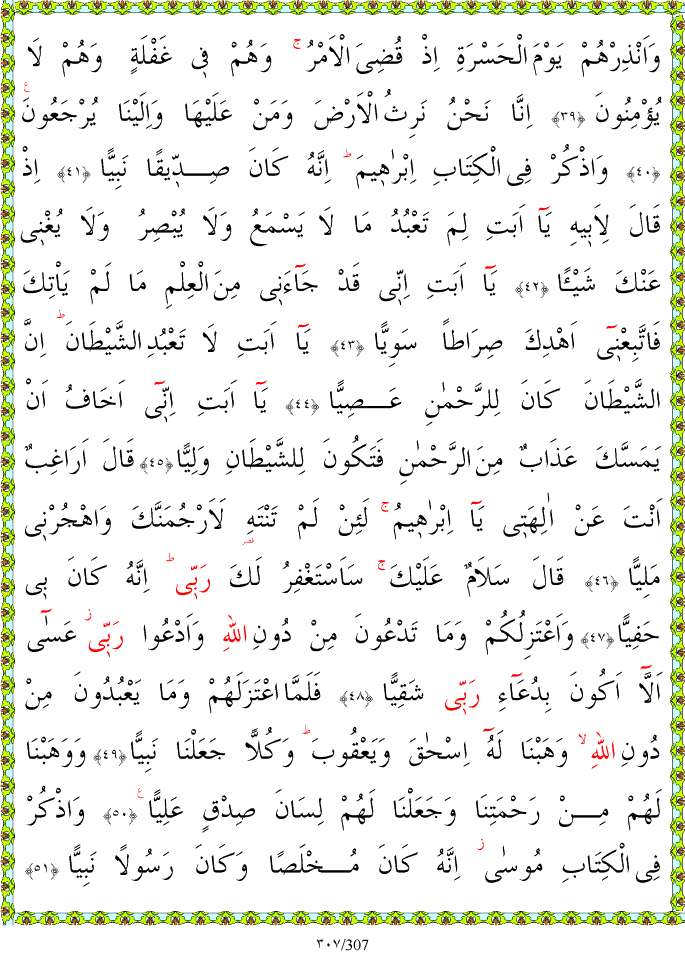 وَاَنْذِرْهُمْ يَوْمَ الْحَسْرَةِ اِذْ قُضِىَ الْاَمْرُ ۚ وَهُمْ ف۪ى غَفْلَةٍ وَهُمْ لَا
يُؤْمِنُونَ ﴿٣٩﴾ اِنَّا نَحْنُ نَرِثُ الْاَرْضَ وَمَنْ عَلَيْهَا وَاِلَيْنَا يُرْجَعُونَ ۟
﴿٤٠﴾ وَاذْكُرْ فِى الْكِتَابِ اِبْرٰه۪يمَ ۜ اِنَّهُ كَانَ صِدّ۪يقًا نَبِيًّا ﴿٤١﴾ اِذْ
قَالَ لِاَب۪يهِ يَٓا اَبَتِ لِمَ تَعْبُدُ مَا لَا يَسْمَعُ وَلَا يُبْصِرُ وَلَا يُغْن۪ى
عَنْكَ شَيْـًٔا ﴿٤٢﴾ يَٓا اَبَتِ اِنّ۪ى قَدْ جَٓاءَن۪ى مِنَ الْعِلْمِ مَا لَمْ يَاْتِكَ
فَاتَّبِعْن۪ٓى اَهْدِكَ صِرَاطًا سَوِيًّا ﴿٤٣﴾ يَٓا اَبَتِ لَا تَعْبُدِ الشَّيْطَانَ ۜ اِنَّ
الشَّيْطَانَ كَانَ لِلرَّحْمٰنِ عَصِيًّا ﴿٤٤﴾ يَٓا اَبَتِ اِنّ۪ٓى اَخَافُ اَنْ
يَمَسَّكَ عَذَابٌ مِنَ الرَّحْمٰنِ فَتَكُونَ لِلشَّيْطَانِ وَلِيًّا ﴿٤٥﴾ قَالَ اَرَاغِبٌ
اَنْتَ عَنْ اٰلِهَت۪ى يَٓا اِبْرٰه۪يمُ ۚ لَئِنْ لَمْ تَنْتَهِ لَاَرْجُمَنَّكَ وَاهْجُرْن۪ى
مَلِيًّا ﴿٤٦﴾ قَالَ سَلَامٌ عَلَيْكَ ۚ سَاَسْتَغْفِرُ لَكَ رَبّ۪ى ۜ اِنَّهُ كَانَ ب۪ى
حَفِيًّا ﴿٤٧﴾ وَاَعْتَزِلُكُمْ وَمَا تَدْعُونَ مِنْ دُونِ اللّٰهِ وَاَدْعُوا رَبّ۪ى ۘ عَسٰٓى
اَلَّٓا اَكُونَ بِدُعَٓاءِ رَبّ۪ى شَقِيًّا ﴿٤٨﴾ فَلَمَّا اعْتَزَلَهُمْ وَمَا يَعْبُدُونَ مِنْ
دُونِ اللّٰهِ ۙ وَهَبْنَا لَهُٓ اِسْحٰقَ وَيَعْقُوبَ ۜ وَكُلًّا جَعَلْنَا نَبِيًّا ﴿٤٩﴾ وَوَهَبْنَا
لَهُمْ مِنْ رَحْمَتِنَا وَجَعَلْنَا لَهُمْ لِسَانَ صِدْقٍ عَلِيًّا ۟ ﴿٥٠﴾ وَاذْكُرْ
فِى الْكِتَابِ مُوسٰٓى ۘ اِنَّهُ كَانَ مُخْلَصًا وَكَانَ رَسُولًا نَبِيًّا ﴿٥١﴾
٣٠٧/307